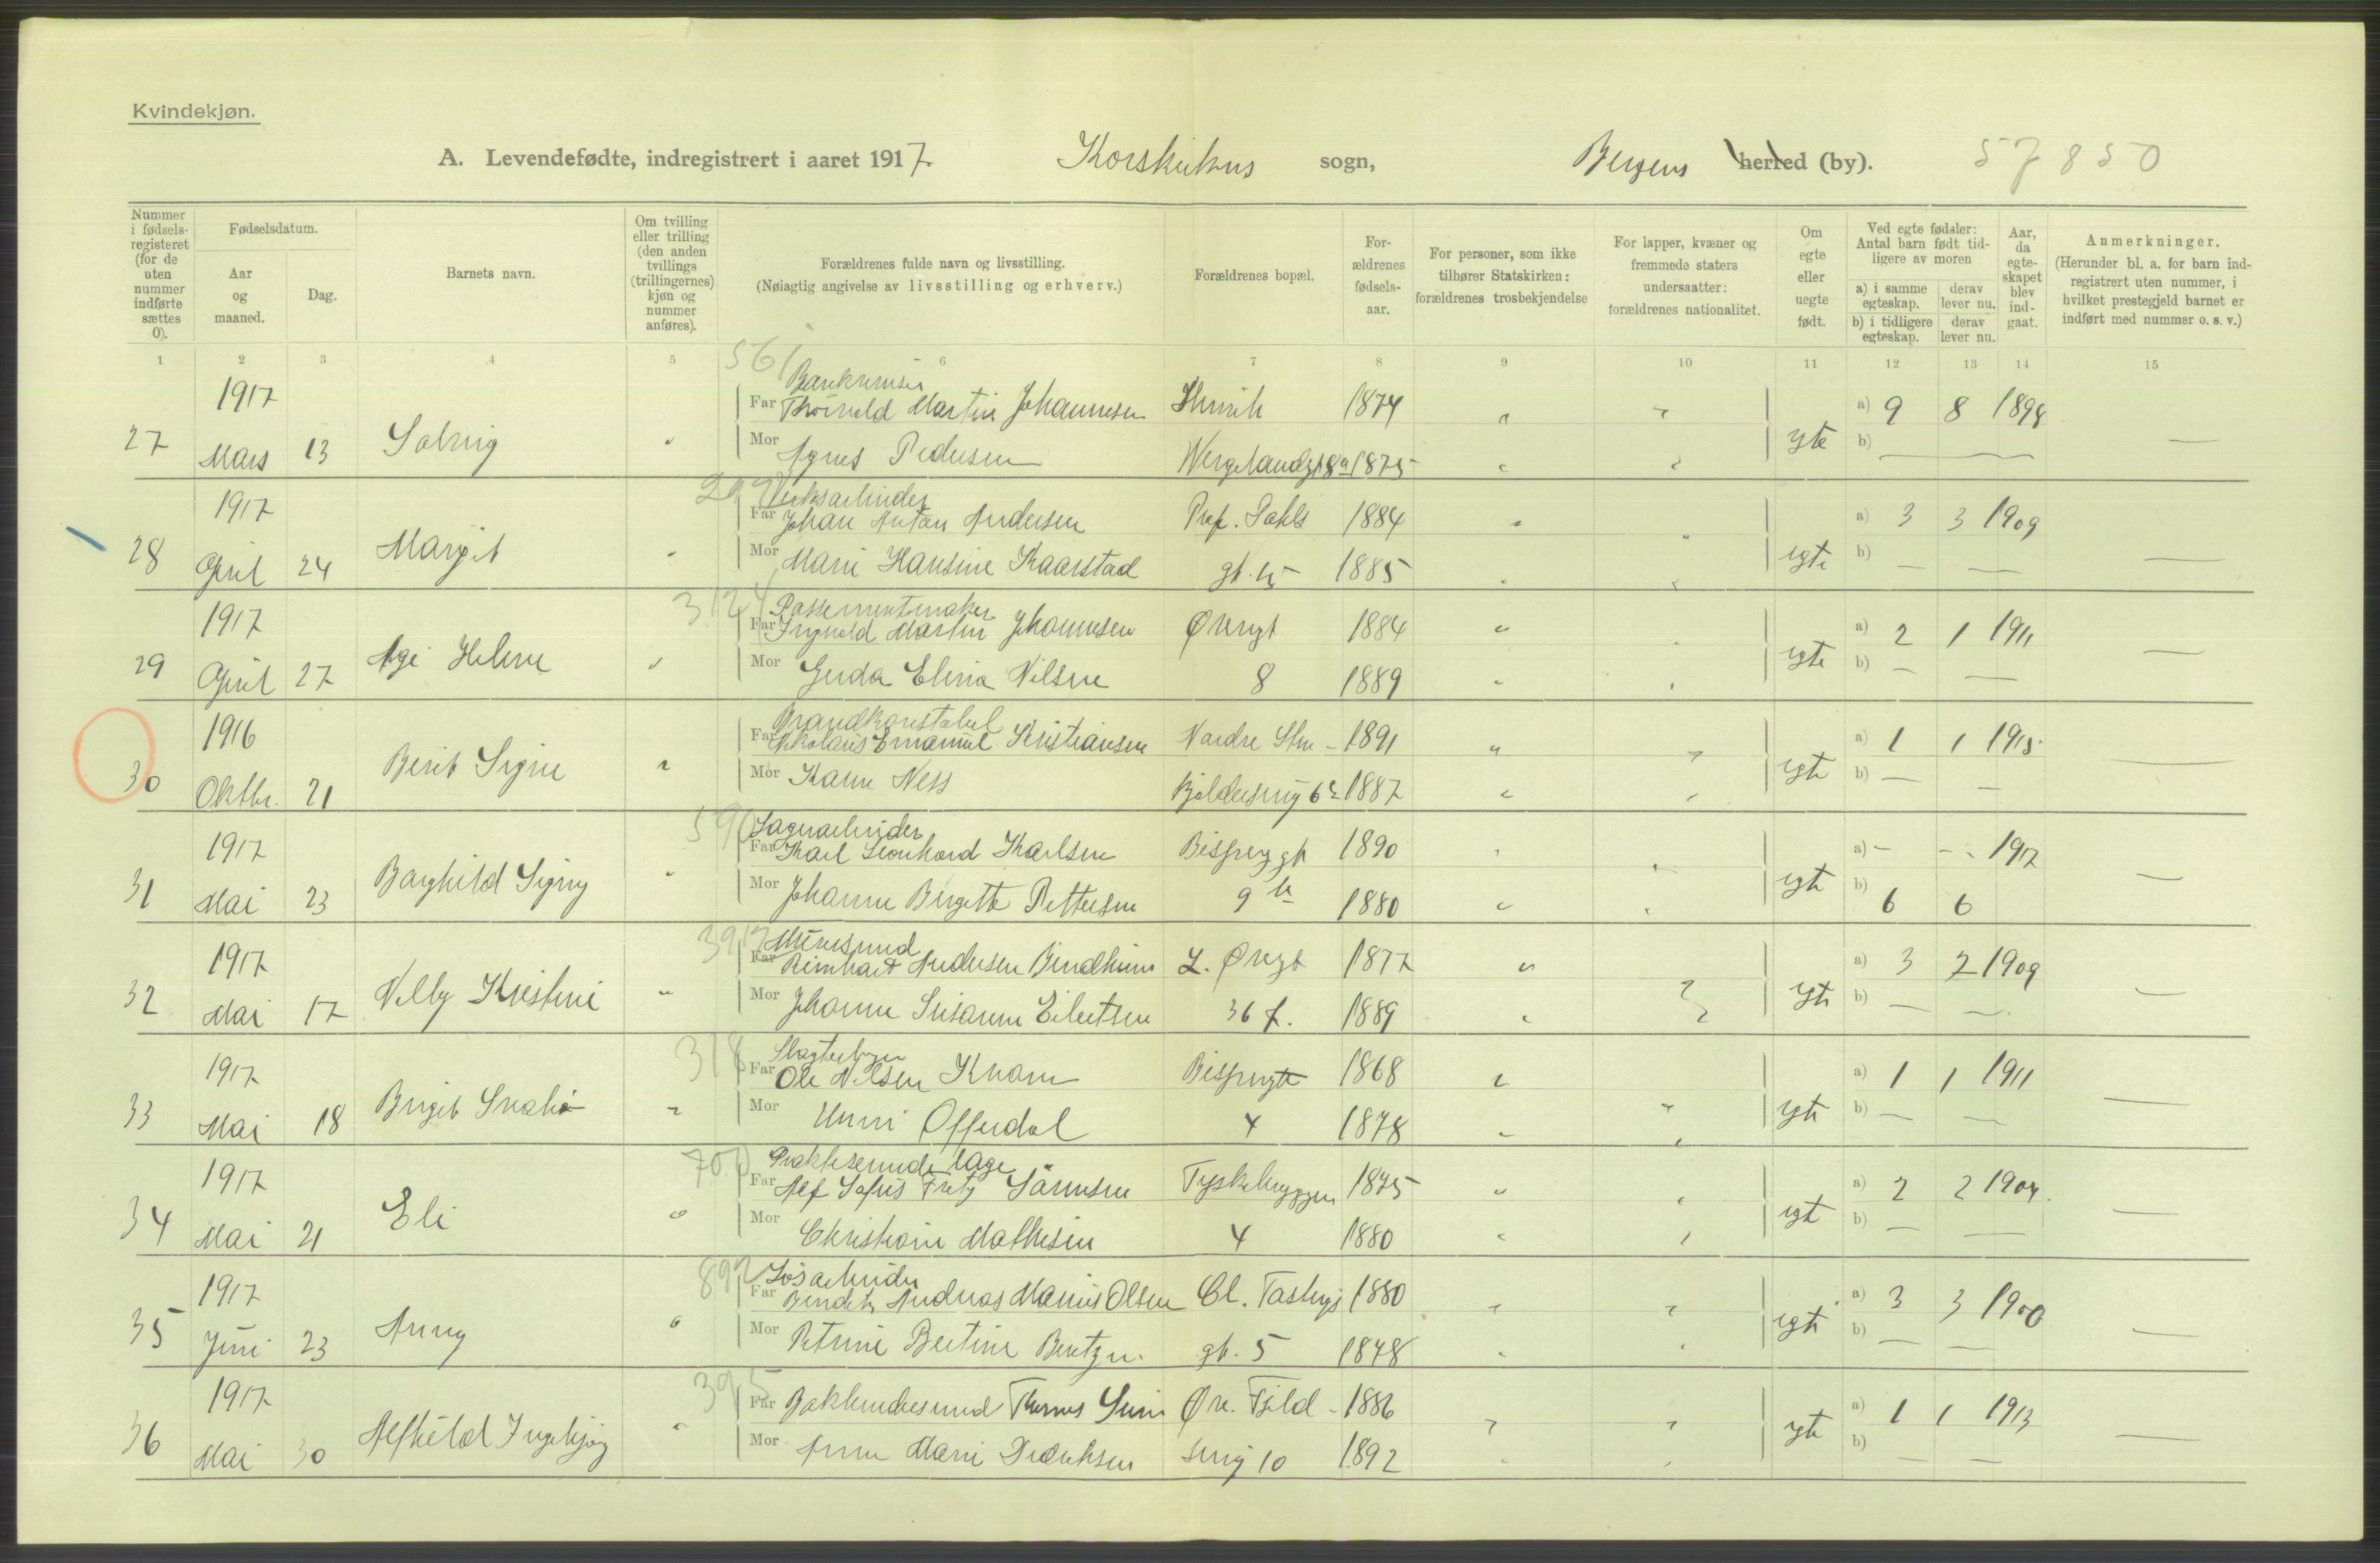 Kvindekjøn.
A. Levendefødte, indregistrert i aaret 1917. Korskirkens sogn, Bergens herred (by). 57850
Nummer i fødsels-registeret (for de uten nummer indførte sættes 0).
Fødselsdatum.
Aar og maaned.
Dag.
Barnets navn.
Om tvilling eller trilling (den anden tvillings (trillingernes) kjøn og nummer anføres).
Forældrenes fulde navn og livsstilling.
(Nøiagtig angivelse av livsstilling og erhverv.)
Forældrenes bopæl.
For-ældrenes fødsels-aar.
For personer, som ikke tilhører Statskirken: forældrenes trosbekjendelse
For lapper, kvæner og fremmede staters undersaatter: forældrenes nationalitet.
Om egte eller uegte født.
Ved egte fødsler: Antal barn født tid-ligere av moren
a) i samme egteskap.
derav lever nu.
b) i tidligere egteskap.
derav lever nu.
Aar, da egte-skapet blev ind-gaat.
Anmerkninger.
(Herunder bl. a. for barn ind-registrert uten nummer, i hvilket prestegjeld barnet er indført med nummer o. s. v.)
1 2 3 4 5 6 7 8 9 10 11 12 13 14 15
561
1917
Far Thorvald Martin Johannesen Henrik 1874 a) 9 8 1898
27 Mars 13 Solveig Mor Agnes Pedersen Wergelandsgt 8a 1875 egte b) —
1917 Verksarbeider
Far Johan Anton Andersen Prof. Dahls 1884 a) 3 3 1909
28 April 24 Margit Mor Marie Hansine Kaarstad gt. 1885 egte b) — —
312
1917 Possementmaker
Far Ingvald Martin Johannesen Øvregt 1884 a) 2 1 1911
29 April 27 Helene Mor Gerda Elina Nilsen 8 1889 egte b) — —
1916 Brandkonstabel
Far Nikolaus Emanuel Kristiansen Nordre 1891 a) 1 1 1915
30 Oktbr. 21 Berit Signe Mor Karen Ness 1887 egte b) — —
590
1917 Lagerarbeider
Far Karl Leonhard Karlsen Bispengt 1890 a) — — 1917
31 Mai 23 Borghild Signy Mor Johanne Birgitte Pettersen 9 b 1880 egte b) 6 6
391
1917 Murersvend
Far Andersen L. Øvregt 1877 a) 3 2 1909
32 Mai 17 Nelly Kristine Mor Johanne Susanne Eilertsen 36 f. 1889 egte b) — —
318
1917
Far Ole Nilsen Bispengt 1868 a) 1 1 1911
33 Mai 18 Birgit Mor Unni Offerdal 4 1878 egte b) — —
1917 Praktiserende læge
Far Alf Sofus Fretz Sørensen Tyskebryggen 1875 a) 2 2
34 Mai 21 Eli Mor Christiane Mathisen 4 1880 egte b) — —
1917 Løsarbeider
Far Andreas Marius Olsen Cl. 1880 a) 3 3 1900
35 Juni 23 Anny Mor Petrine Bertine Bentzen gt. 5 1878 egte b) — —
395
1917 Far Øvre Fjeld 1886 a) 1 1 1913
36 Mai 30 Alfhild Ingebjørg Mor Anna Marie Didriksen smug 10 1892 egte b) — —